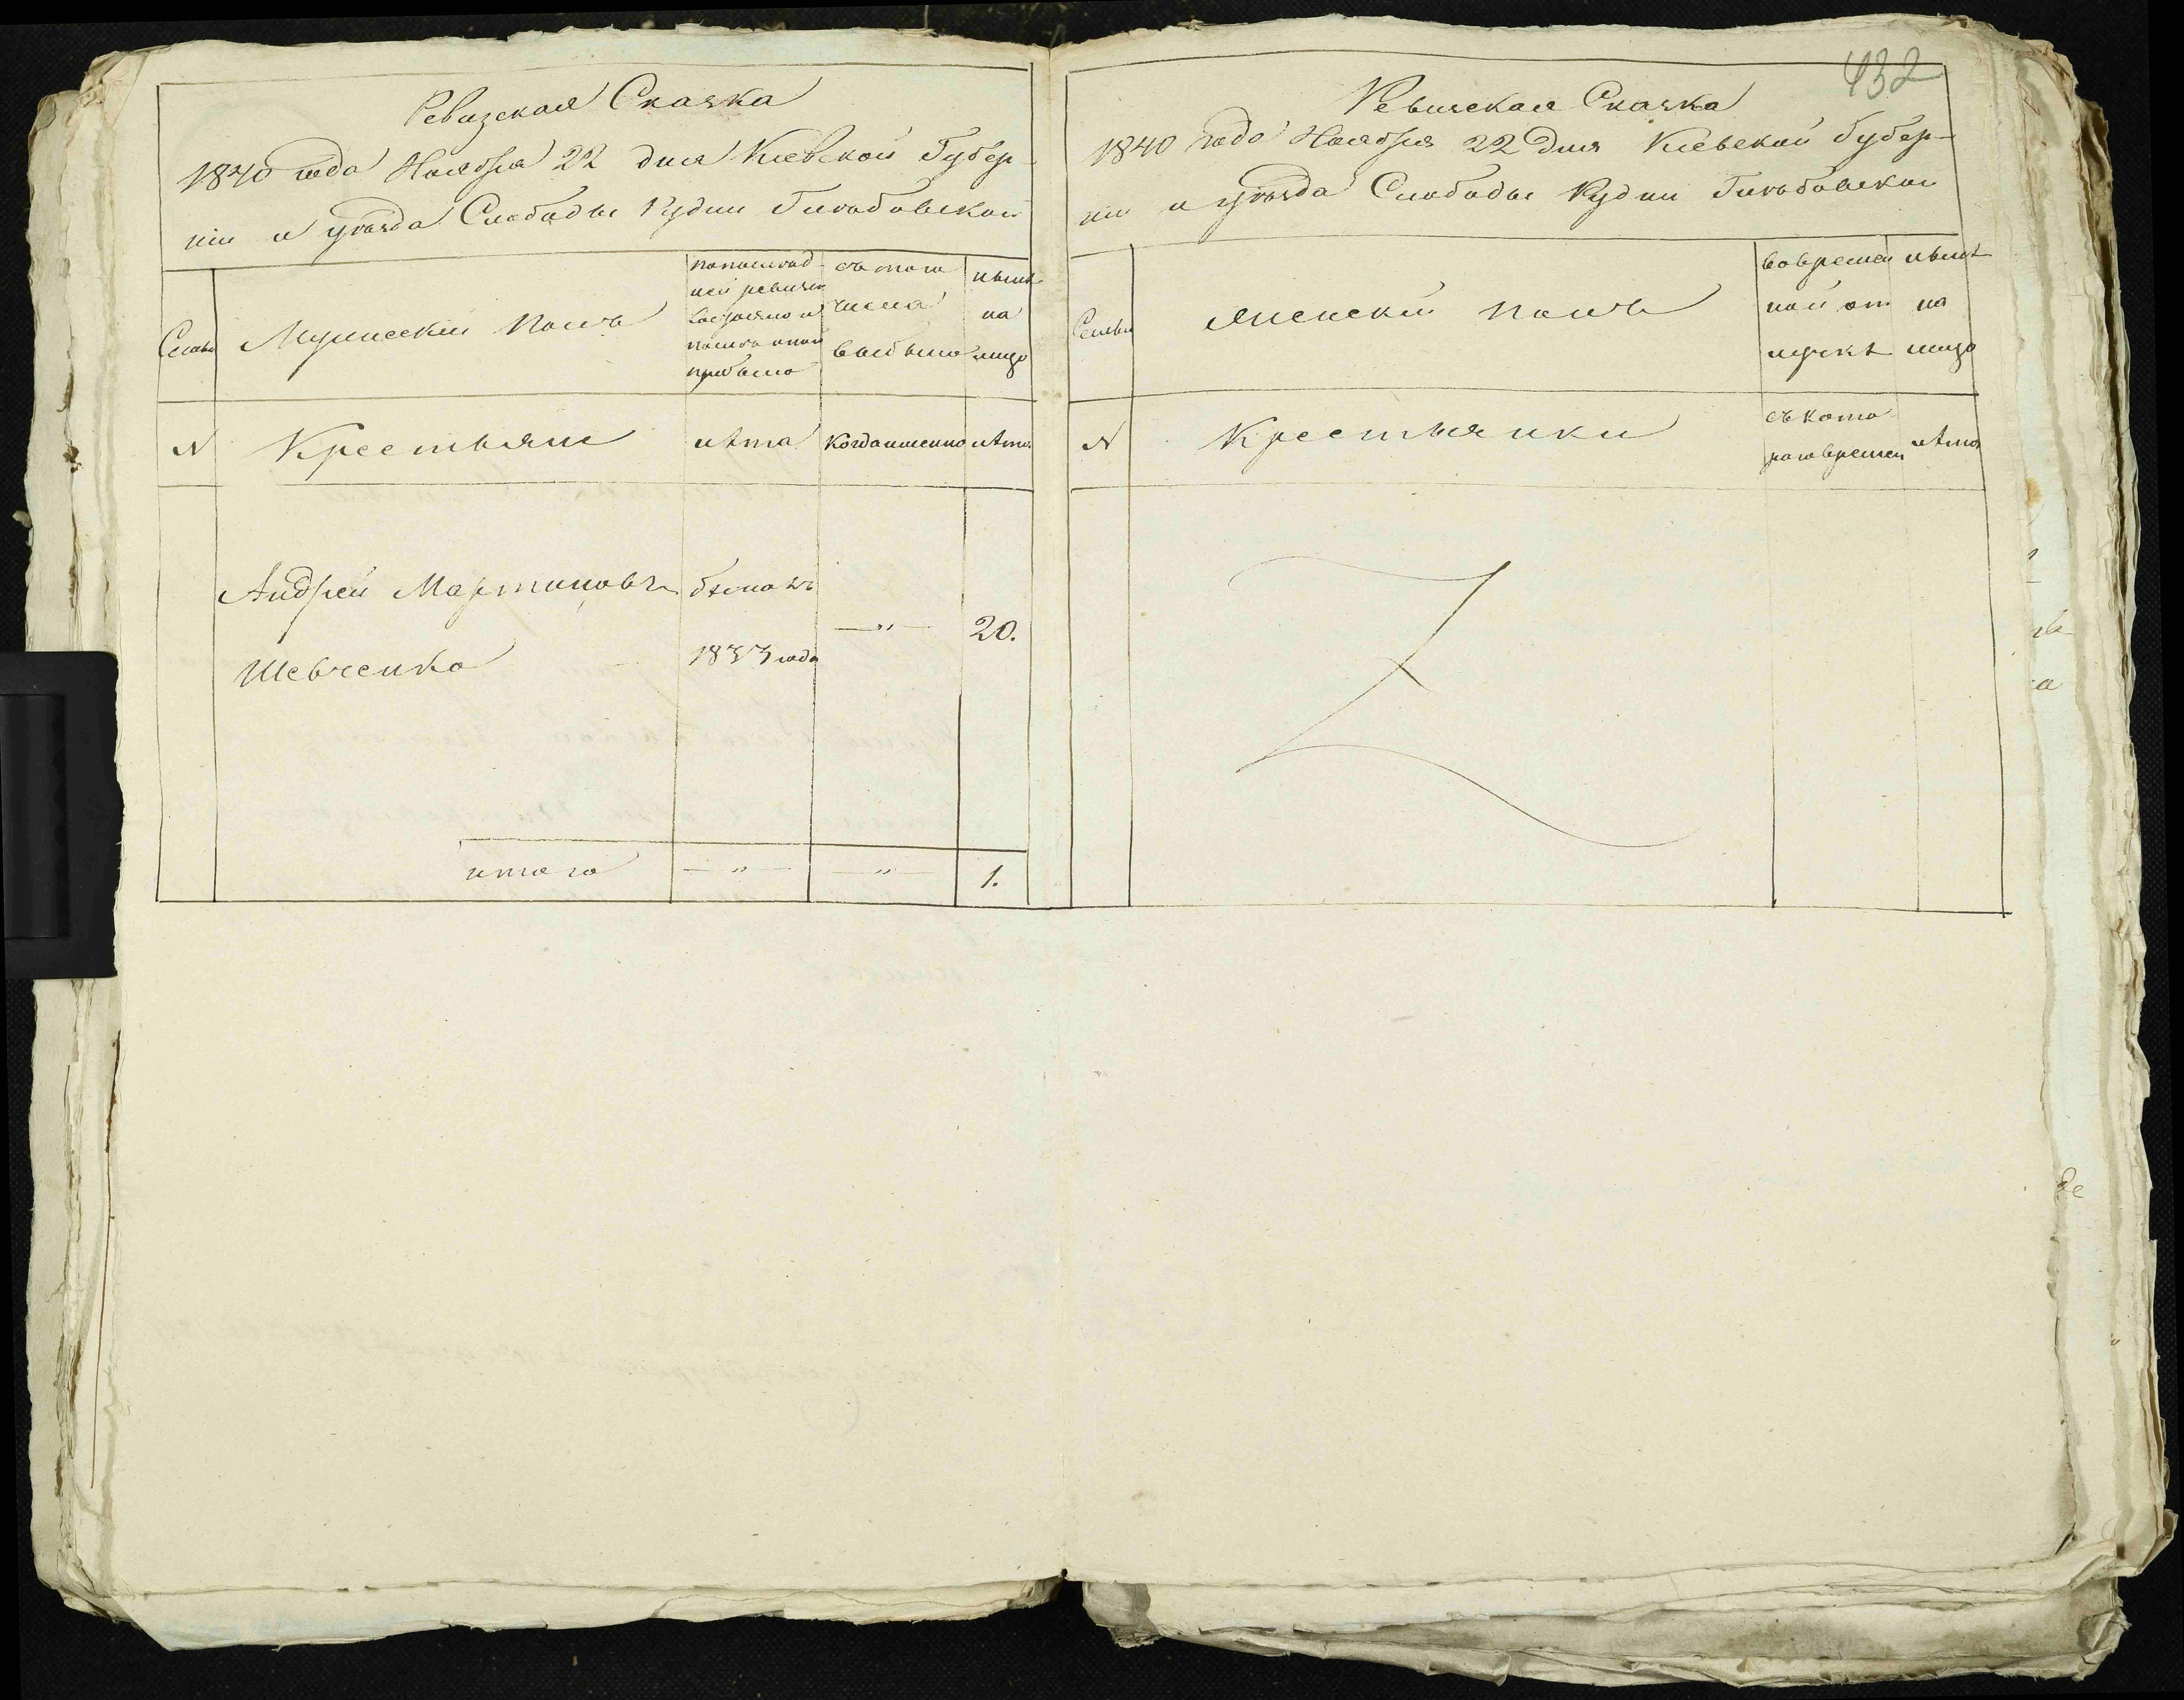 432
Ревизская Сказка
1840 года Ноября 22 дня Киевской Губер-
нии и уѣзда Слободы Рудни
Семьи
Мужеский полъ
по послѣд-
ней ревизіи
состояло и
послѣ оной
прибыло
съ того
числа
выбыло
нынѣ
на
лицо
N
Крестьяне
лѣта
когда именно
лѣта
Андрей Мартиновъ
Шевченко
бѣглахъ
1833 года
— " —
20.
итого
— " —
— " —
1.
Ревизская Сказка
1840 года Ноября 22 дня Киевской Губер-
нии и уѣзда Слободы Рудни
Семьи
Женский полъ
во времен
ной от
лучкѣ
нынѣ
на
лицо
N
Крестьянки
съ кото
раго времен
лѣта